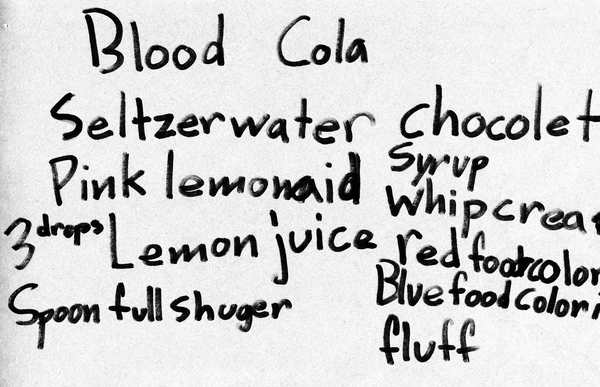 Blood Cola
Seltzerwater
Pink lemonaid
3 drops Lemon juice
Spoon full shuger
chocolet
Syrup
whip crea
red foodcolor
Blue food colori
fluff